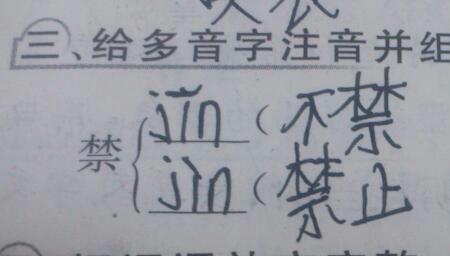 三、给多音字注音并组
禁{jīn(不禁
jìn(禁止